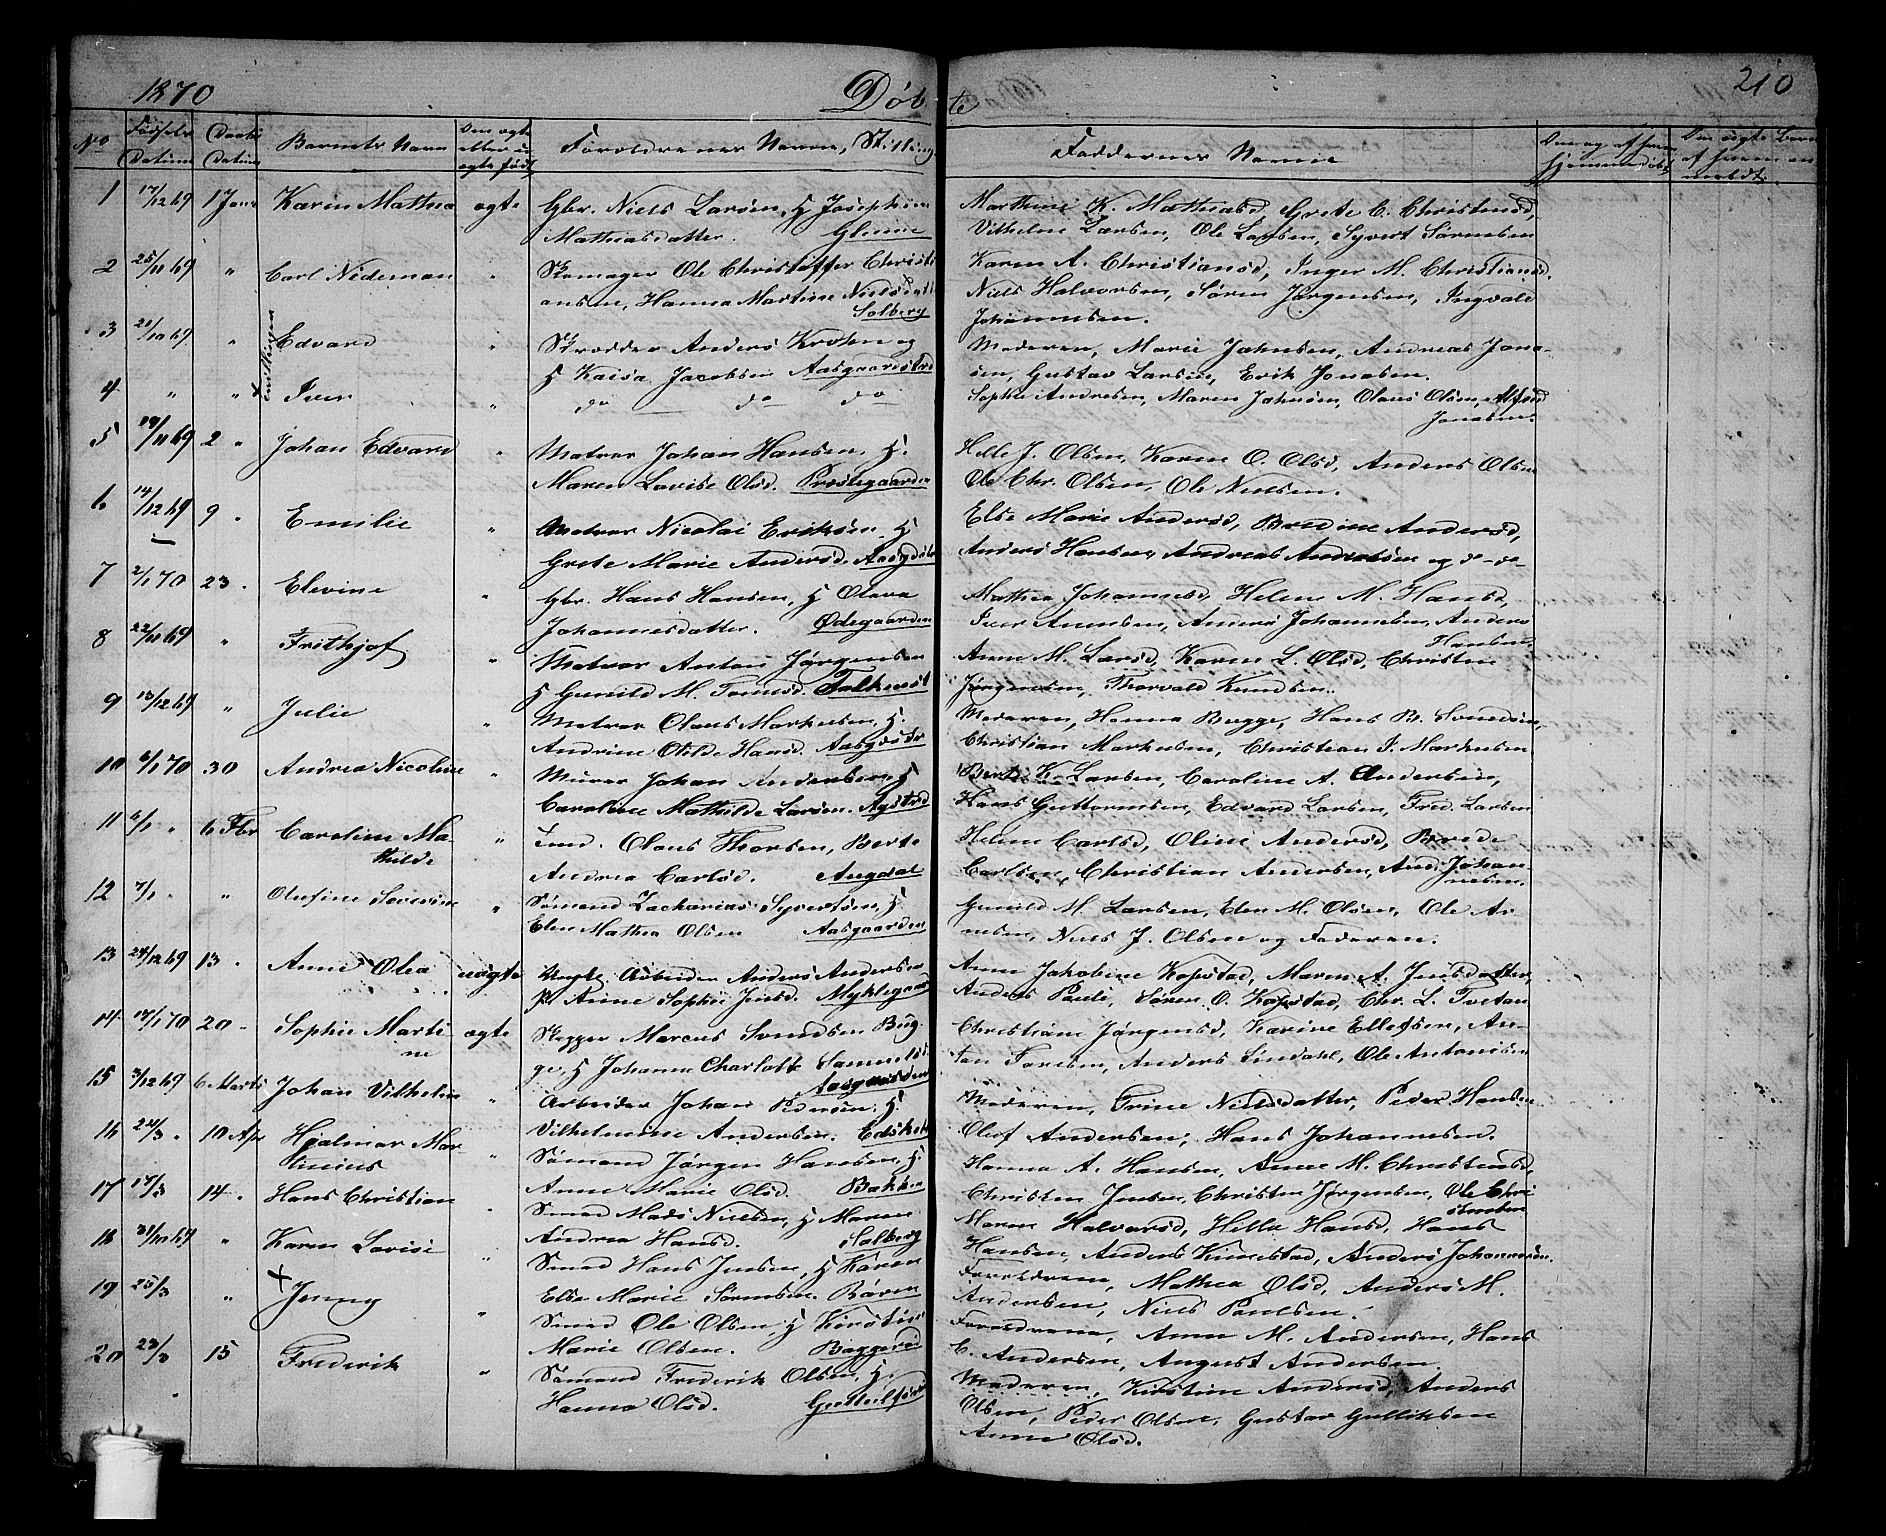 1870
Døb
te
210
No
Fødsels
Datum
Daabs
Datum
Barnets Navn
Om ægte
eller u
ægte født
Forældrenes Navne, Stilling
Faddernes Navne
Om og af hvem
hjemmedøbt
Om uægte Barn
af hvem an
meldt
1 17/12 69 1 Janr Karen Mathea ægte Gbr. Niels Larsen, H Josephine
Mathiasdatter. Glenne
Marthine K. Mathiasd, Grete C. Christensd,
Vilhelm Larsen, Ole Larsen, Syvert Sørensen
2 25/11 69 " Carl Nideman " Skomager Ole Christoffer Christi
ansen, Hanna Martine Nielsdatt
Solberg
Karen A. Christiansd, Inger M. Christiansd.
Niels Halvorsen, Søren Jørgensen, Ingvald
Johannesen.
3 21/10 69 " tvillinger Edvard " Skrædder Anders Krohn og
H Kaisa Jacobsen Aasgaardstrd
Moderen, Marie Jahnsen, Andreas Jona-
sen, Gustav Larsen, Erik Jonasen.
4 " " + Iver " do do do
Sophie Andresen, Maren Jahnsen, Olaus Olsen, Alfred
Jonasen.
5 19/11 69 2 " Johan Edvard " Matros Johan Hansen, H.
Maren Lovise Olsd. Præstegaarden
Helle J. Olsen, Karen O. Olsd, Anders Olsen
Ole Chr. Olsen, Ole Nielsen.
6 14/12 69 9 " Emilie " Matros Nicolai Eriksen, H
Grete Marie Andersd. Aasgdstr
Else Marie Andersd, Bredine Andersd,
Anders Hansen, Andreas Andresen og d-de
7 2/1 70 23 " Elevine " Gbr. Hans Hansen, H Olava
Johannesdatter. Ødegaarden
Mathea Johannesd, Helene M. Hansd,
Iver Anensen, Anders Johannesen, Anders
Hansen
8 22/11 69 " Frithjof " Matros Anton Jørgensen
H Gunild M. Tomesd. Falkenst
Anne M. Larsd, Karen L. Olsd, Christen
Jørgensen, Thorvald Knudsen.
9 13/12 69 " Julie " Matros Olaus Markusen, H.
Andrine Otilde Hansd. Aasgdstr
Moderen, Hanna Bugge, Hans B. Svendsen,
Christian Markusen, Christian J. Markusen
10 6/1 70 30 Andrea Nicoline " Murer Johan Andersen, H
Caroline Mathilde Larsen. Agstrd
Berte K. Larsen, Caroline A. Andersen,
Hans Guttormsen, Edvard Larsen, Fred. Larsen
11 6/1 " 6 Fbr Caroline Ma-
thilde " Tmd. Olaus Thorsen, Berte
Andrea Carlsd. Augdal
Helene Carlsd, Oline Andersd, Brede
Carlsen, Christian Andersen, And. Johan
nesen.
12 7/1 " " Olufine Severine " Sømand Zacharias Syvertsen, H.
Elen Mathea Olsen Aasgaarden
Gunild M. Larsen, Elen M. Olsen, Ole Ar-
nesen, Niels J. Olsen og Faderen.
13 24/12 69 13 " Anne Olea uægte Ungk. Arbeider Anders Andersen
P. Anne Sophie Jensd. Myklegaar
Anne Jakobine Kopstad, Maren A. Jensdatter,
Anders Pauli, Søren O. Kopstad, Chr. L. Tvetan
14 17/1 70 20 - Sophie Marti
ne ægte Skipper Marcus Svendsen Bug
ge, H Johanne Charlotte Samuelsd.
Aasgaardstrd
Christiane Jørgensd, Karine Ellefsen, An-
ton Foresen, Anders Lindahl, Ole Antonisen
15 3/12 69 6 Marts Johan Vilhelm " Arbeider Johan Pedersen, H.
Vilhelmine Andersen. Edsken
Moderen, Trine Nielsdatter, Peder Hansen
Oluf Andersen, Hans Johannesen.
16 24/3 " 10 Apr Hjalmar Mar
tinius " Sømand Jørgen Hansen, H.
Anne Marie Olsd. Bakken
Hanna A. Hansen, Anne M. Christensd,
Christen Jensen, Christen Jørgensen, Ole Chri
stensen
17 17/3 14 " Hans Christian " Sømd Mads Nielsen, H Maren
Andrea Hansd. Solberg
Maren Halvorsd, Helle Hansd, Hans
Hansen, Anders Kimestad, Anders Johannesen.
18 31/10 69 " Karen Lovise " Smed Hans Jensen, H Karen
Else Marie Sørensen. Røren
Forældrene, Mathea Olsd, Anders M.
Andersen, Niels Paulsen.
19 25/3 " + Jenny " Smed Ole Olsen, H Kirstine
Marie Olsen. Baggerød
Forældrene, Anne M. Andersen, Hans
C. Andersen, August Andersen.
20 23/3 15 Frederik " Sømand Frederik Olsen, H.
Hanna Olsd.
Moderen, Kirstine Andersd, Anders
Olsen, Peder Olsen, Gustav Gulliksen
Anne Olsd.